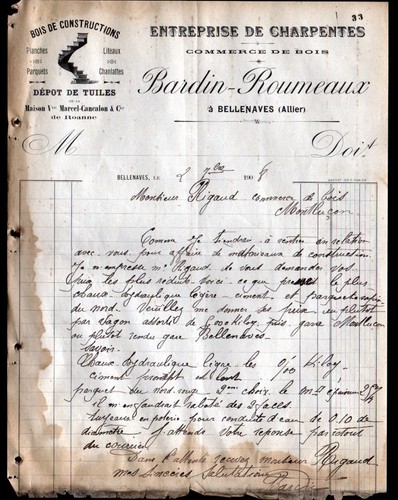 33
BOIS DE CONSTRUCTIONS
Planches
Liteaux
Parquets
Chanlattes
DÉPOT DE TUILES
DE LA
Maison Vve Marcel-Cancalon & Cie
de Roanne
ENTREPRISE DE CHARPENTES
COMMERCE DE BOIS
Bardin-Roumeaux
à BELLENAVES (Allier)
M
Doit
BELLENAVES, LE 2 190
Monsieur Rigaud commerce de bois
Montluçon
Comme je tiendrai à rentrer en relation
avec vous pour affaire de matériaux de construction
Je m'empresse Mr Rigaud de vous demander vos
prix les plus réduits voici ce que le plus
chaux hydraulique légère ciment et parquet
du nord. Veuillez me donner ces prix au plutôt
par wagon assortis de kilog puis gare Montluçon
ou plutôt rendu gare Bellenaves
Savoir
Chaux hydraulique légère les 0/00 kilog
ciment prompt et lent
parquet du nord rouge 2em choix le m2 épaisseur
il m'en faudrait raboté des 2 faces
tuyaux en poterie pour conduite d'eau de 0.10 de
diamètre j'attends votre réponse par retour
du courrier
Dans l'attente recevez monsieur Rigaud
mes sincères salutations